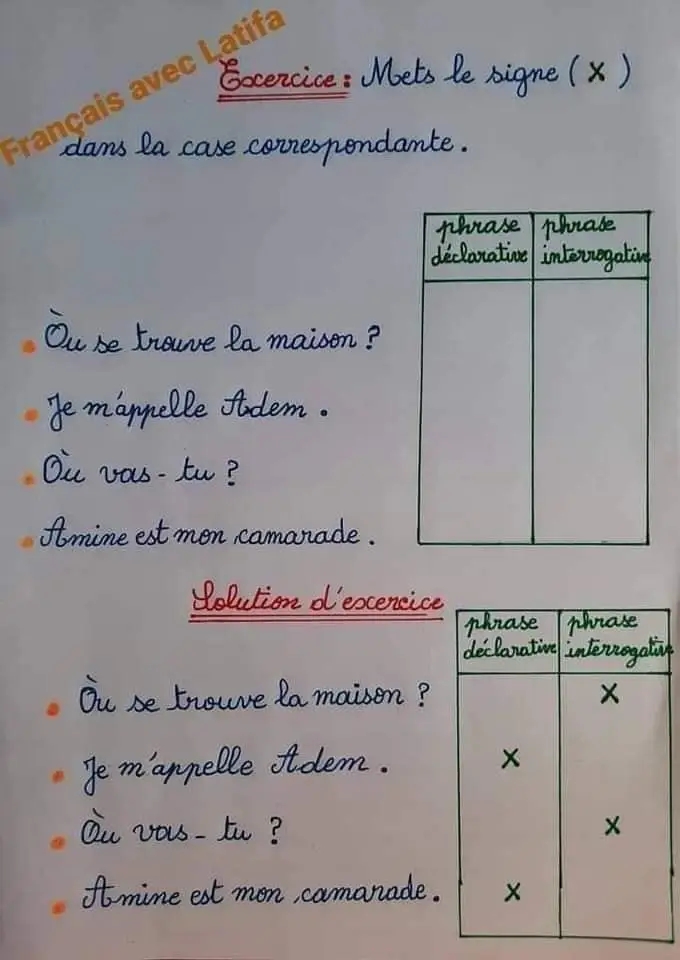 Français avec Latifa
Excercice : Mets le signe ( x )
dans la case correspondante .
phrase déclarative
phrase interrogative
Òu se trouve la maison ?
Je m'appelle Adem .
Où vas - tu ?
Amine est mon camarade .
Solution d'excercice
phrase déclarative
phrase interrogative
Òu se trouve la maison ? x
Je m'appelle Adem . x
Òu vas - tu ? x
Amine est mon camarade . x